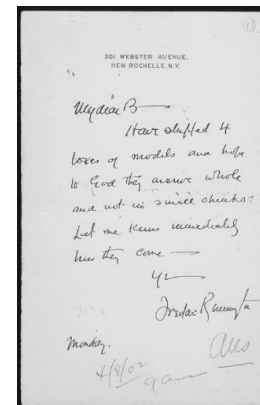 (1)
301 WEBSTER AVENUE.
NEW ROCHELLE, N.Y.
My dear B—
Have shipped 4
boxes of models and hope
to God they arrive whole
and not in small chunks.
Let me know immediately
how they come —
Yr—
Frederic Remington
Monday.
Ans
4/8/02